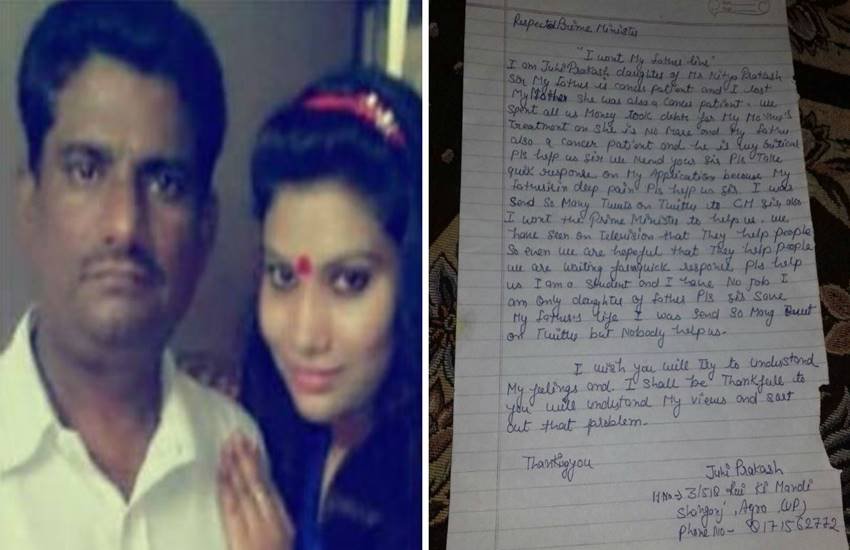 Respected Prime Minister
"I wont My father live"
I am Juhi Prakash daughter of Mr Nitya Prakash
Sir My father is cancer patient and I lost
My Mother She was also a cancer patient. We
spent all us Money took debts for My Mother's
treatment on She is No More and My father
also a cancer patient and he is very critical
Pls help us Sir we Need your Sir Pls Take
quik response on My Application because My
father in deep pain Pls help us sir. I was
Send So Many Tweets on Twitter to CM Sir, also
I wont the Prime Minister to help us. We
have seen on Television that They help people
So even we are hopeful that They help people
we are waiting for quick response, Pls help
us I am a Student and I have No job I
am Only daughter of father Pls Sir Save
My father's life I was Send So Many tweet
on Twitter but Nobody help us.
I wish you will try to understand
My feelings and I shall be Thankfull to
you will undustand My views and sort
out that problem.
Thankyou
Juhi Prakash
H.No → 3/518 Ki Mandi
Shahganj, Agra (UP)
Phone No - 8171562772